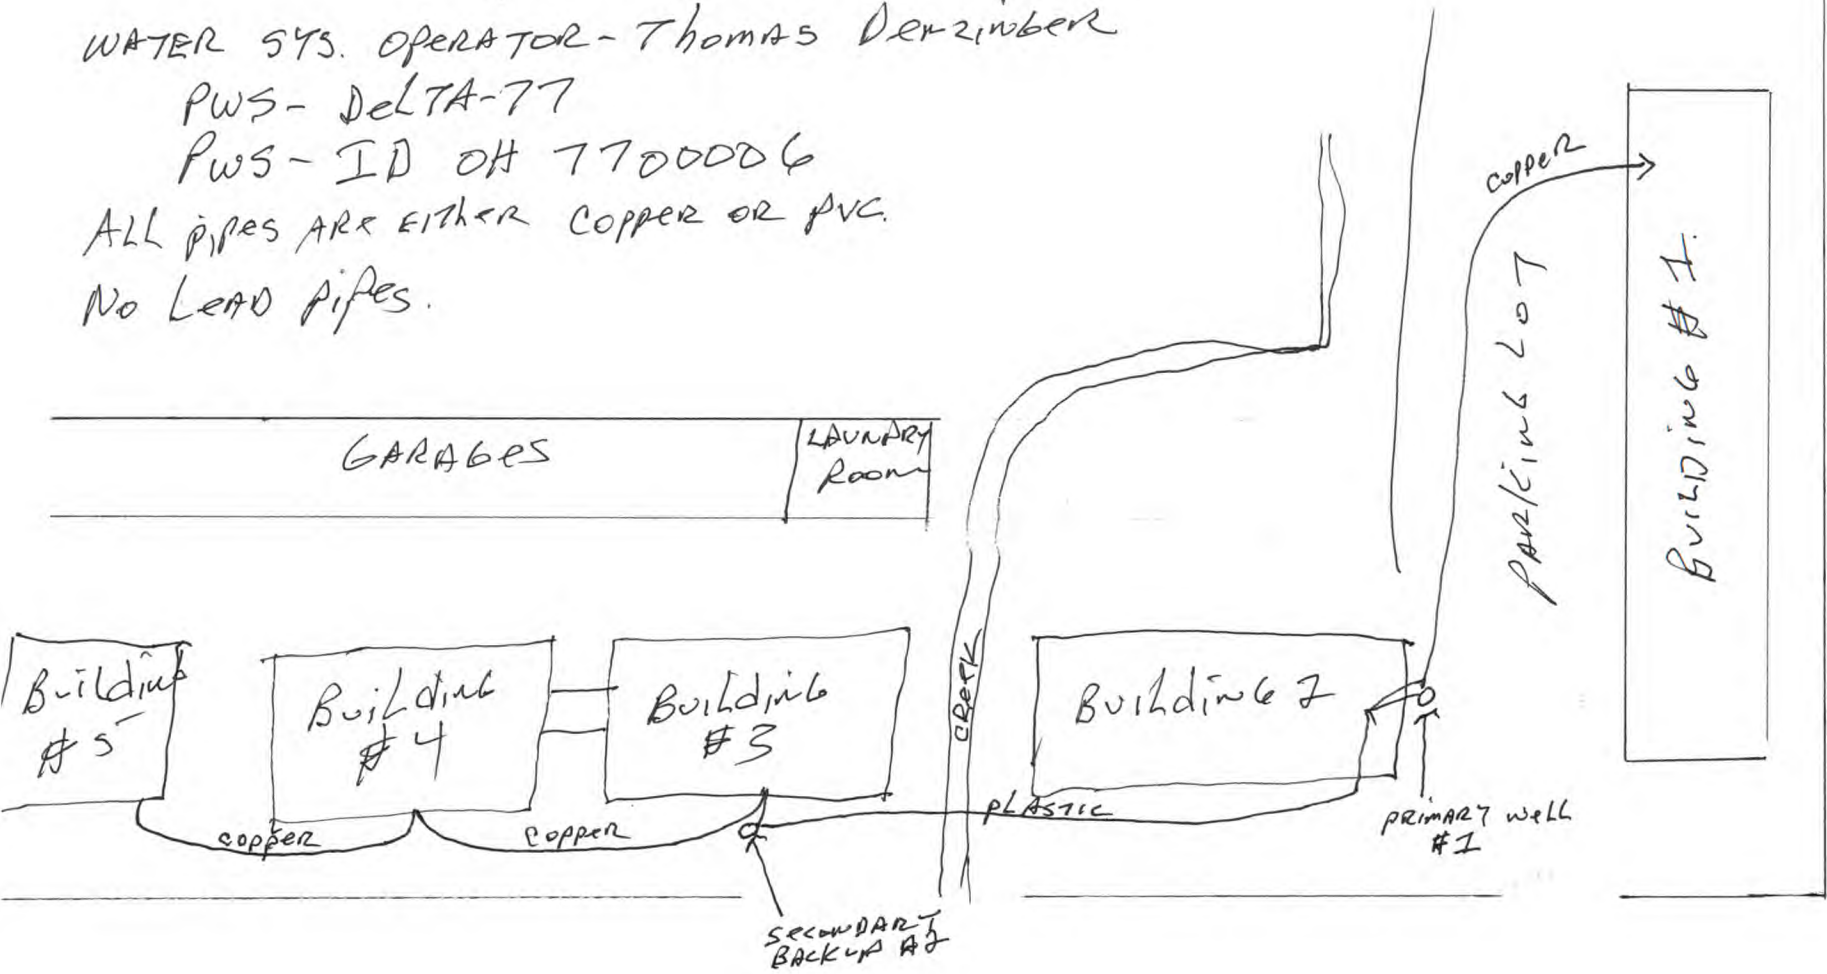 WATER SYS. OPERATOR - Thomas Derzinger
PWS - DELTA-77
PWS - ID OH 7700006
ALL pipes ARE EITHER COPPER OR PVC.
No LEAD pipes.
COPPER
GARAGES
LAUNDRY
ROOM
PARKING LOT
BuiLDinG # 1.
CREEK
Building
# 5
Building
# 4
Building
# 3
Building 2
COPPER
COPPER
PLASTIC
PRIMARY WELL
# 1
SECONDARY
BACKUP #2